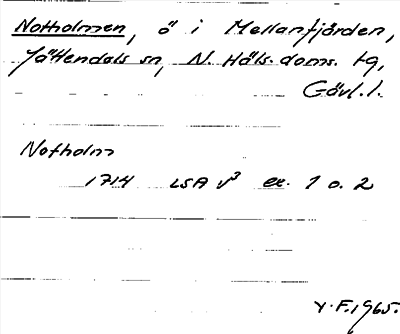 Notholmen, ö i Mellanfjärden,
Jättendals sn, N. Häls. doms. tg,
Gävl. l.
Notholm
1714 LSA V³ ex. 1 o. 2
Y.F. 1965.